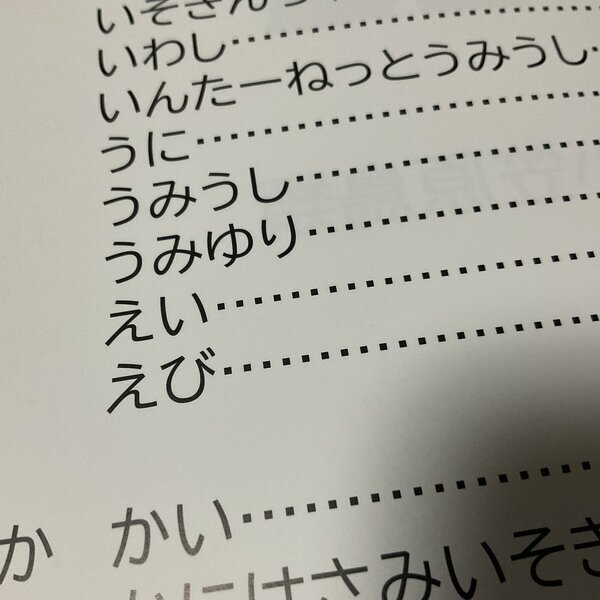 いわし…………
いんたーねっとうみうし…
うに…………………
うみうし……………
うみゆり……………
えい…………………
えび…………………
か かい…………………
かにはさみいそぎ